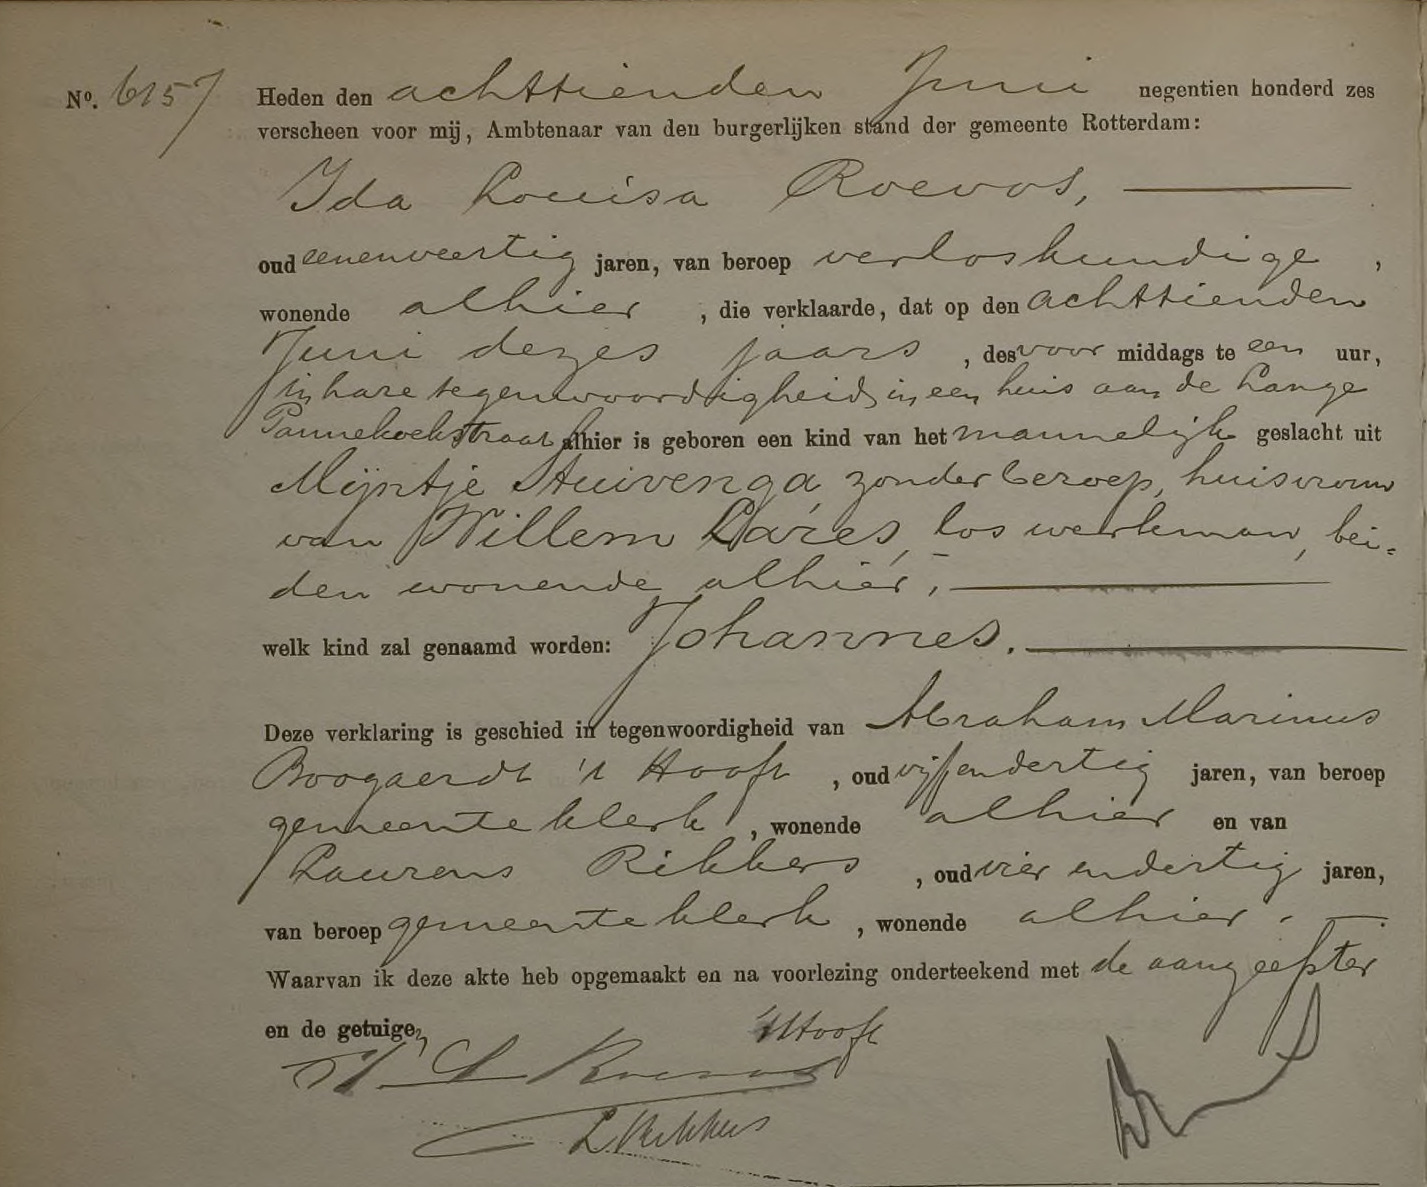 Nº. 6157 Heden den achttienden Juni negentien honderd zes
verscheen voor mij, Ambtenaar van den burgerlijken stand der gemeente Rotterdam:
Ida Louisa Roevos,
oud eenenveertig jaren, van beroep verloskundige,
wonende alhier, die verklaarde, dat op den achttienden
Juni dezes jaars, des voor middags te een uur,
in hare tegenwoordigheid, in een huis aan de Lange
Pannekoekstraat alhier is geboren een kind van het mannelijk geslacht uit
Mijntje Stuivenga, zonder beroep, huisvrouw
van Willem Lares, los werkman, bei-
den wonende alhier,
welk kind zal genaamd worden: Johannes.
Deze verklaring is geschied in tegenwoordigheid van Abraham Marinus
Boogaerdt 't Hooft, oud vijfendertig jaren, van beroep
gemeenteklerk, wonende alhier en van
Laurens Rikkers, oud vierendertig jaren,
van beroep gemeenteklerk, wonende alhier.
Waarvan ik deze akte heb opgemaakt en na voorlezing onderteekend met de aangeefster
en de getuigen
't Hooft
I L Roevos
L Rikkers